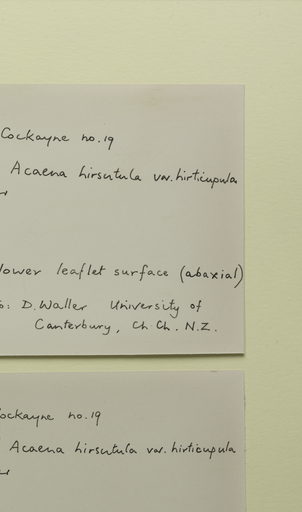 Cockayne no.19
Acaena hirsutula var. hirticupula
lower leaflet surface (abaxial)
: D. Waller University of
Canterbury, Ch Ch. N.Z.
ockayne no.19
Acaena hirsutula var. hirticupula